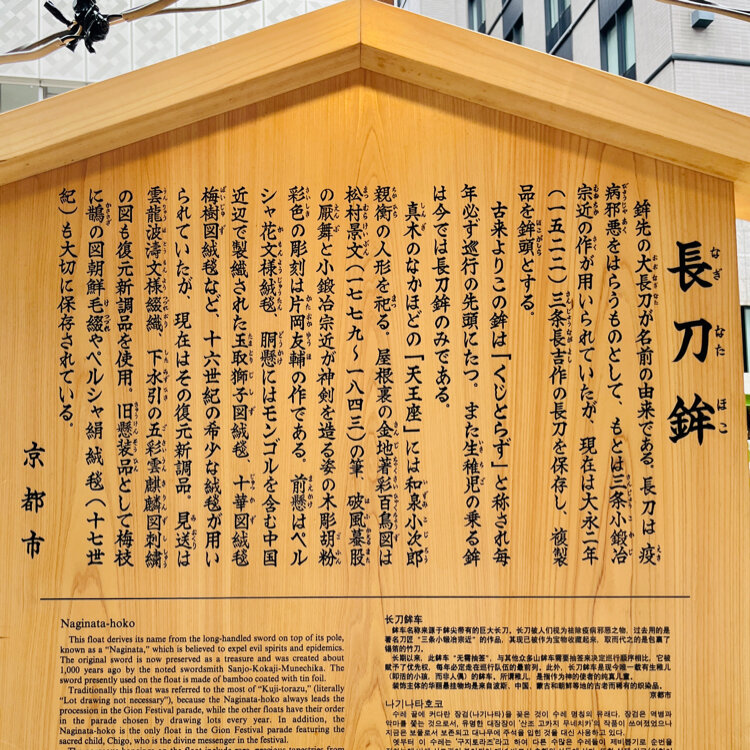 長刀鉾
鉾先の大長刀が名前の由来である。長刀は疫
病邪悪をはらうものとして、もとは三条小鍛冶
宗近の作が用いられていたが、現在は大永二年
(一五二二)三条長吉作の長刀を保存し、複製
品を鉾頭とする。
古来よりこの鉾は「くじとらず」と称され毎
年必ず巡行の先頭にたつ。また生稚児の乗る鉾
は今では長刀鉾のみである。
真木のなかほどの「天王座」には和泉小次郎
親衡の人形を祀る。屋根裏の金地著彩百鳥図は
松村景文(一七七九〜一八四三)の筆、破風蟇股
の厭舞と小鍛冶宗近が神剣を造る姿の木彫胡粉
彩色の彫刻は片岡友輔の作である。前懸はペル
シャ花文様絨毯、胴懸にはモンゴルを含む中国
近辺で製織された玉取獅子図絨毯、十華図絨毯
梅樹図絨毯など、十六世紀の希少な絨毯が用い
られていたが、現在はその復元新調品、見送は
雲龍波濤文様綴織、下水引の五彩雲麒麟図刺繍
の図も復元新調品を使用。旧懸装品として梅枝
に鵲の図朝鮮毛綴やペルシャ絹絨毯(十七世
紀)も大切に保存されている。
京都市
Naginata-hoko
This float derives its name from the long-handled sword on top of its pole,
known as a "Naginata," which is believed to expel evil spirits and epidemics.
The original sword is now preserved as a treasure and was created about
1,000 years ago by the noted swordsmith Sanjo-Kokaji-Munechika. The
sword presently used on the float is made of bamboo coated with tin foil.
Traditionally this float was referred to the most of "Kuji-torazu," (literally
"Lot drawing not necessary"), because the Naginata-hoko always leads the
procession in the Gion Festival parade, while the other floats have their order
in the parade chosen by drawing lots every year. In addition, the
Naginata-hoko is the only float in the Gion Festival parade featuring the
sacred child, Chigo, who is the divine messenger in the festival.
长刀鉾车
鉾车名称来源于鉾尖带有的巨大长刀,长刀被人们视为祛除疫病邪恶之物,过去用的是
著名刀匠"三条小锻冶宗近"的作品,其现已被作为宝物收藏起来,取而代之的是包裹了
锡箔的竹刀。
长期以来,此鉾车"无需抽签",与其他众多山鉾车需要抽签来决定巡行顺序相比,它被
赋予了优先权,每年必定走在巡行队伍的最前列。此外,长刀鉾车是现今唯一载有生稚儿
(即活的小孩,而非人偶)的鉾车,所谓稚儿,是指作为神的使者的纯真儿童。
装饰主体的华丽悬挂物均是来自波斯、中国、蒙古和朝鲜等地的古老而稀有的织染品。
京都市
나기나타호코
수레 끝에 커다란 장검(나기나타)을 꽂은 것이 수레 명칭의 유래다. 장검은 역병과
악마를 쫓는 것으로서,